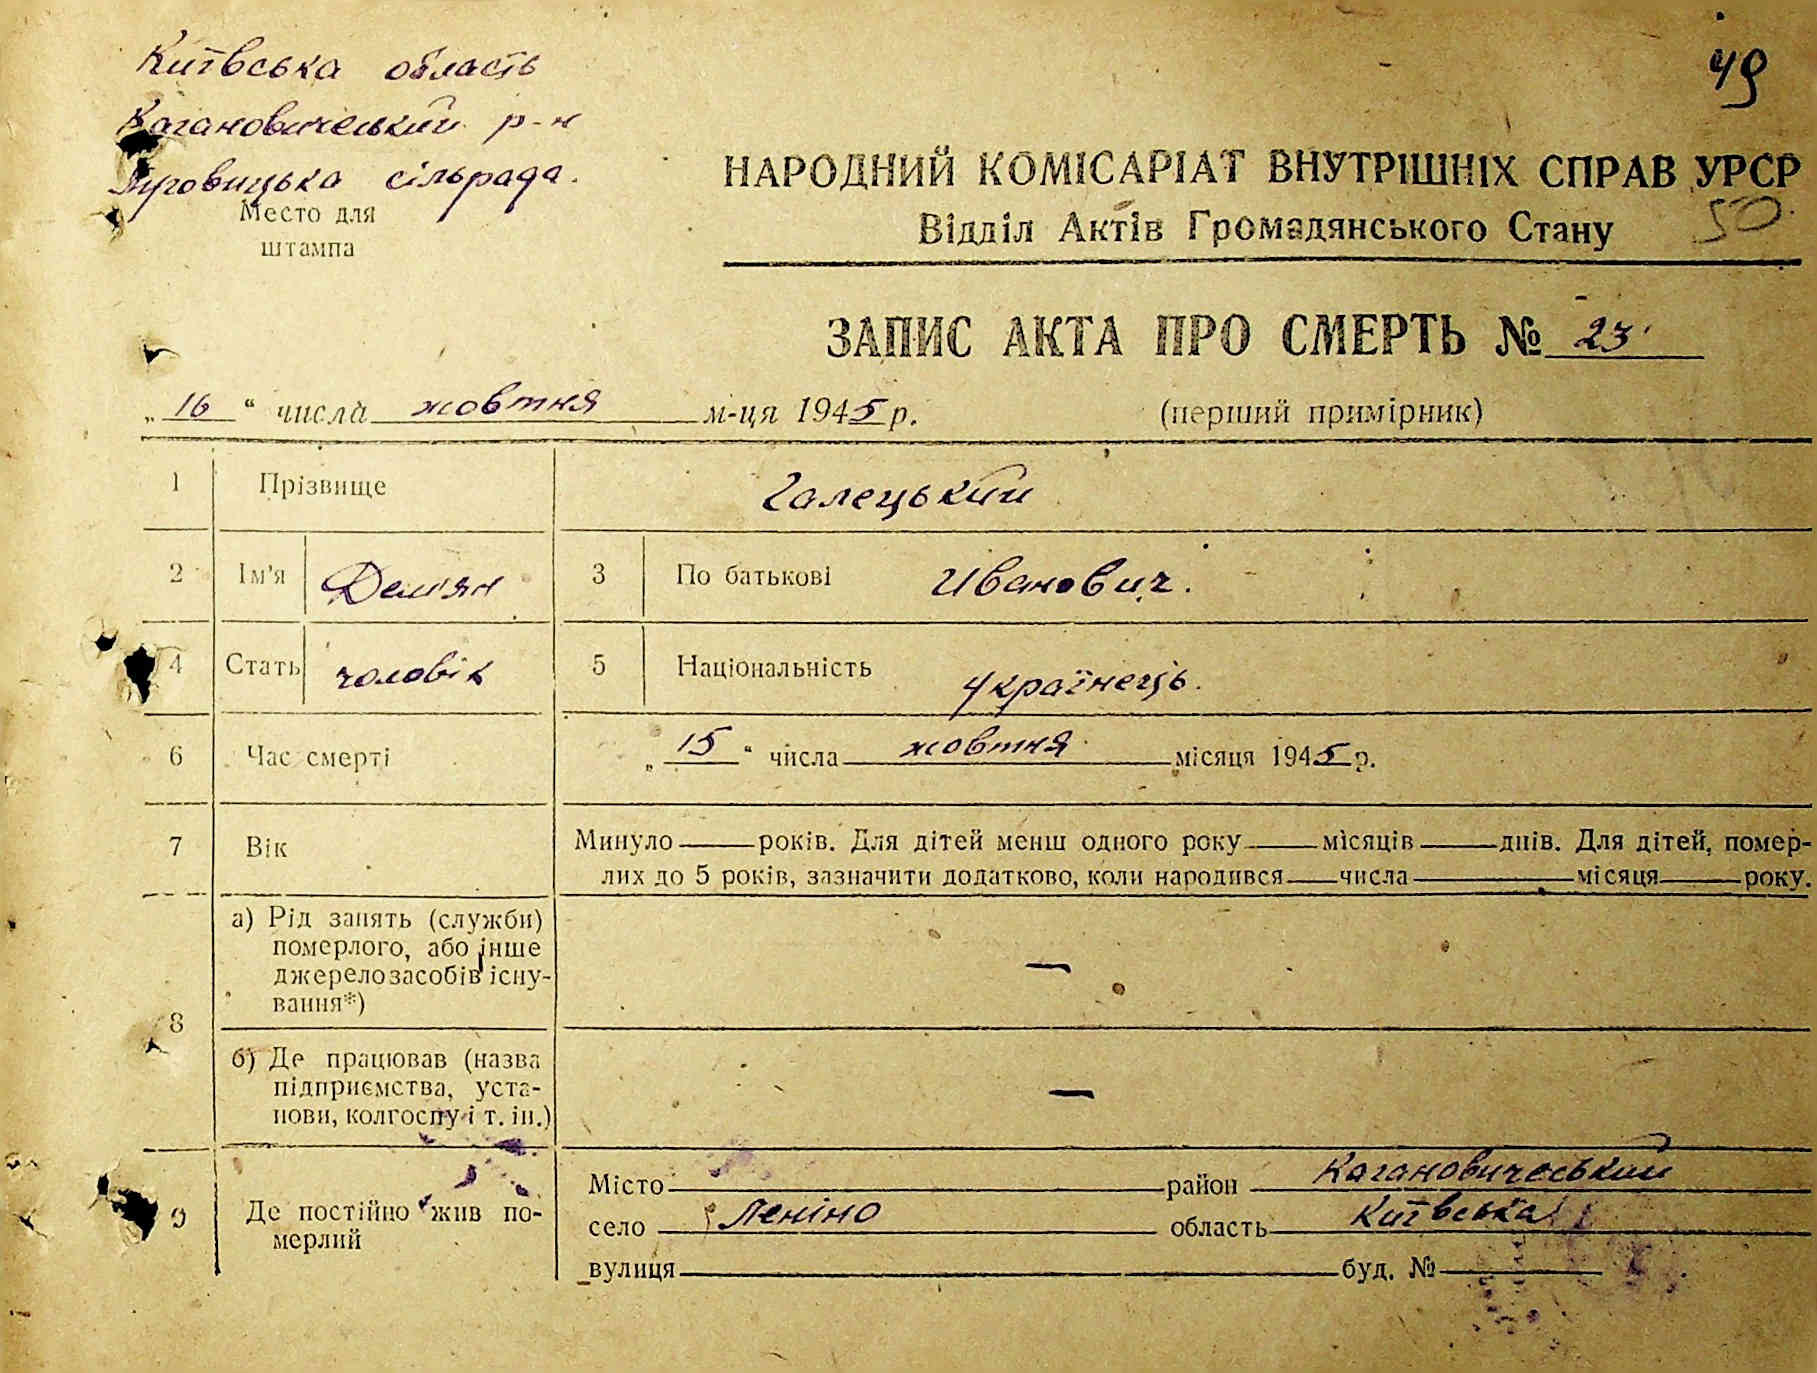 Київська область
49
Кагановичеський р-н
Луговицька сільрада.
НАРОДНИЙ КОМІСАРІАТ ВНУТРІШНІХ СПРАВ УРСР
Место для
штампа
Відділ Актів Громадянського Стану
50
ЗАПИС АКТА ПРО СМЕРТЬ № 23
„16“ числа жовтня м-ця 1945 р. (перший примірник)
1 Прізвище Галецький
2 Ім'я Дем'ян 3 По батькові Иванович.
4 Стать чоловік 5 Національність українець.
6 Час смерті „15“ числа жовтня місяця 1945 р.
7 Вік Минуло років. Для дітей менш одного року місяців днів. Для дітей, помер-
лих до 5 років, зазначити додатково, коли народився числа місяця року.
8 а) Рід занять (служби)
померлого, або інше
джерело засобів існу-
вання*) —
б) Де працював (назва
підприємства, уста-
нови, колгоспу і т. ін.) —
9 Де постійно жив по-
мерлий
Місто район Кагановичеський
село Леніно область Київська
вулиця буд. №